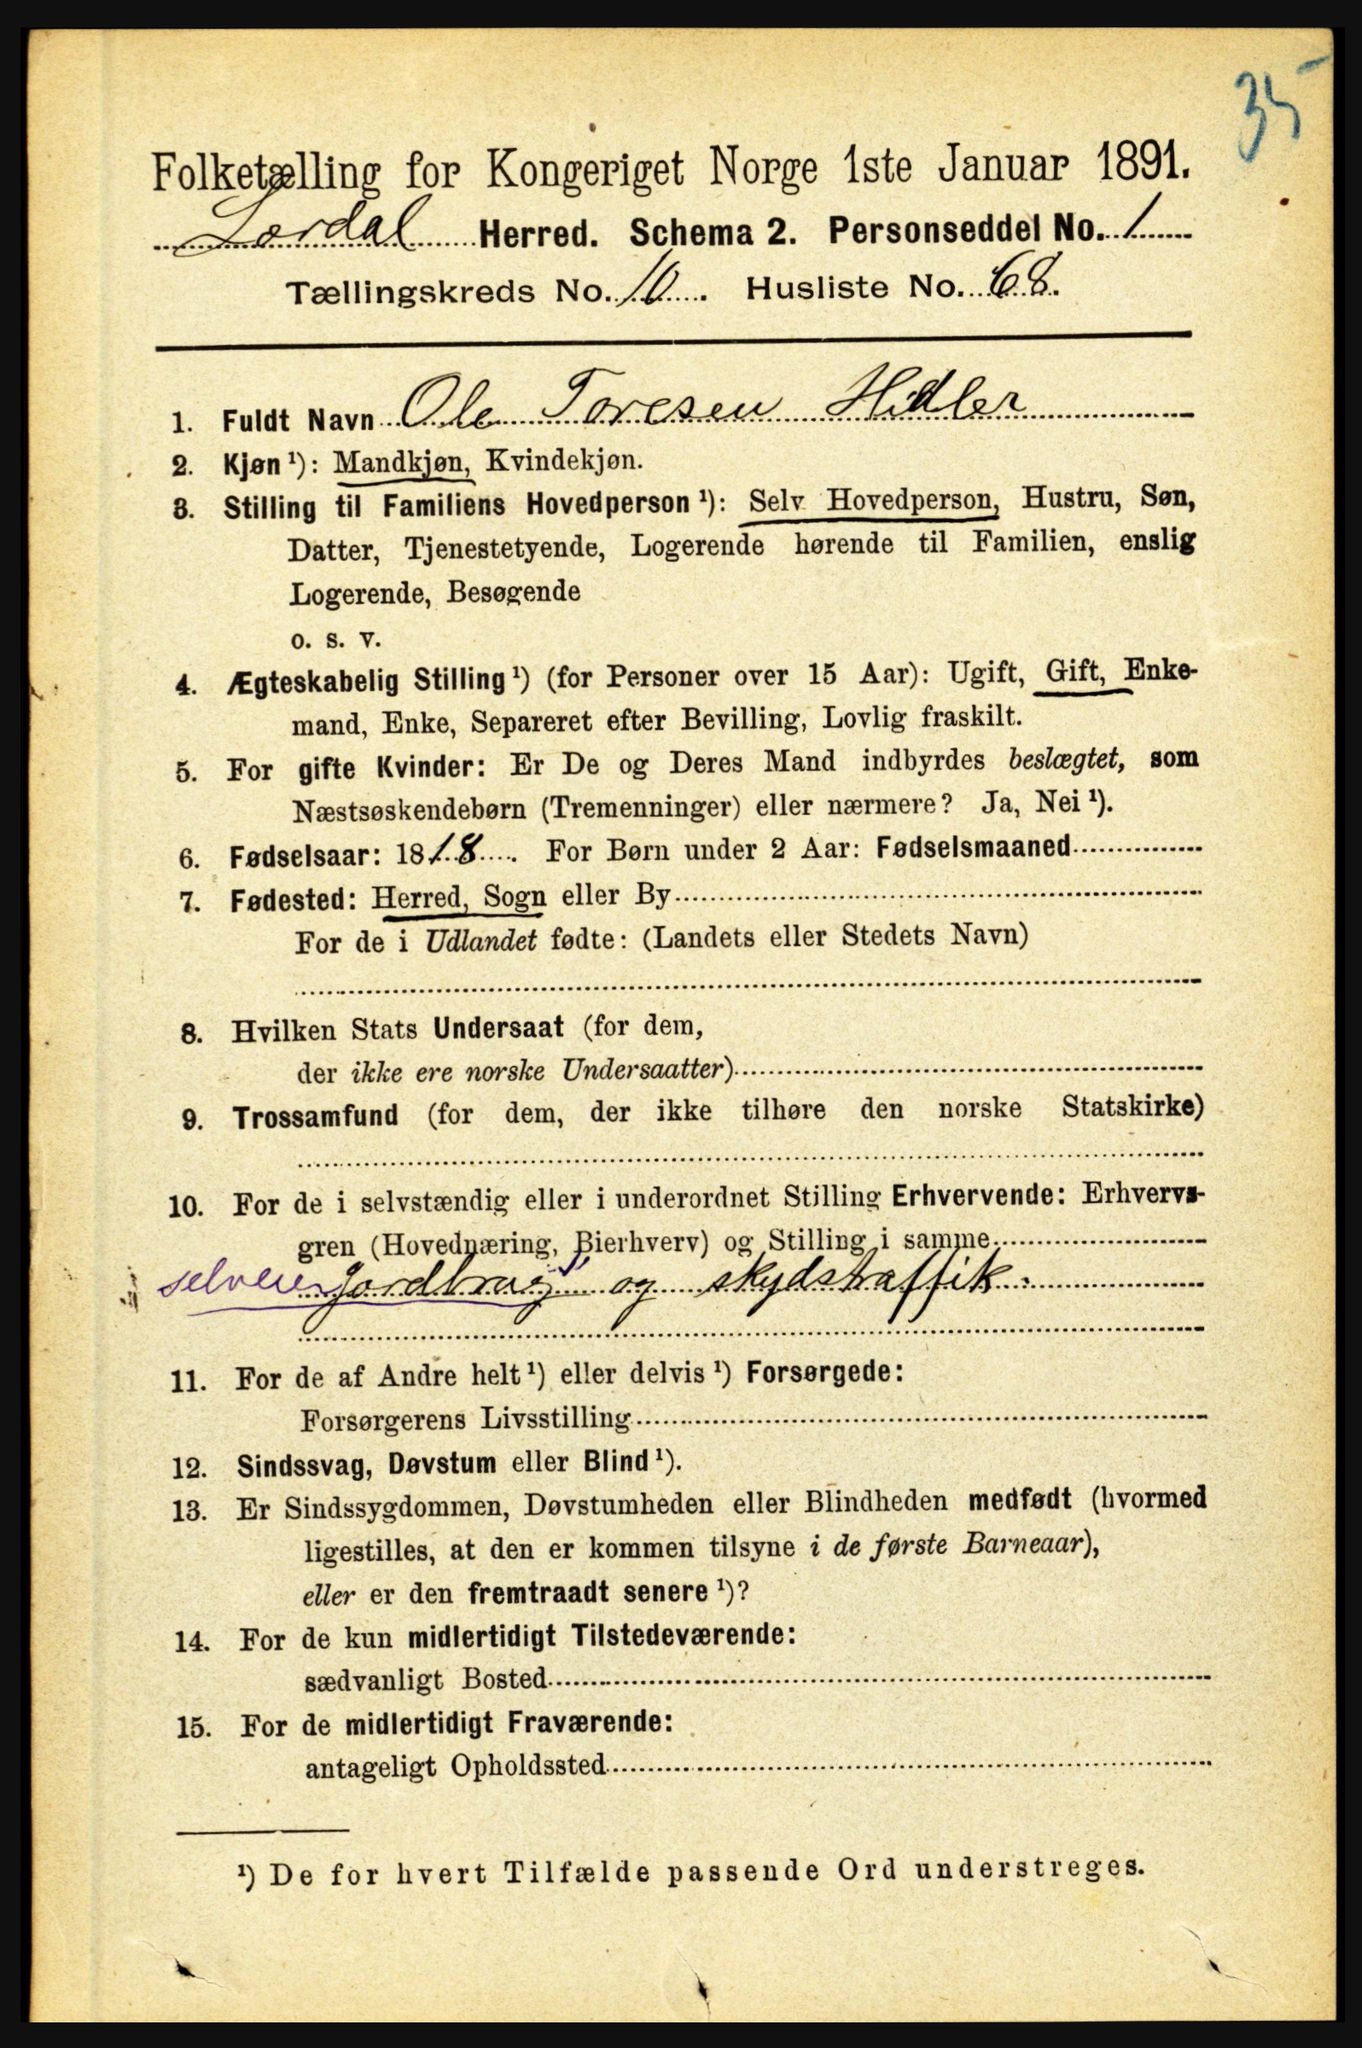 35
Folketælling for Kongeriget Norge 1ste Januar 1891.
Lærdal Herred. Schema 2. Personseddel No. 1
Tællingskreds No. 10. Husliste No. 68.
1. Fuldt Navn Ole Toresen
2. Kjøn ¹): Mandkjøn, Kvindekjøn.
3. Stilling til Familiens Hovedperson ¹): Selv Hovedperson, Hustru, Søn,
Datter, Tjenestetyende, Logerende hørende til Familien, enslig
Logerende, Besøgende
o. s. v.
4. Ægteskabelig Stilling ¹) (for Personer over 15 Aar): Ugift, Gift, Enke-
mand, Enke, Separeret efter Bevilling, Lovlig fraskilt.
5. For gifte Kvinder: Er De og Deres Mand indbyrdes beslægtet, som
Næstsøskendebørn (Tremenninger) eller nærmere? Ja, Nei ¹).
6. Fødselsaar: 1818. For Børn under 2 Aar: Fødselsmaaned
7. Fødested: Herred, Sogn eller By
For de i Udlandet fødte: (Landets eller Stedets Navn)
8. Hvilken Stats Undersaat (for dem,
der ikke ere norske Undersaatter)
9. Trossamfund (for dem, der ikke tilhøre den norske Statskirke)
10. For de i selvstændig eller i underordnet Stilling Erhvervende: Erhvervs-
gren (Hovednæring, Bierhverv) og Stilling i samme
selveier Jordbrug og skydstraffik.
11. For de af Andre helt ¹) eller delvis ¹) Forsørgede:
Forsørgerens Livsstilling
12. Sindssvag, Døvstum eller Blind ¹).
13. Er Sindssygdommen, Døvstumheden eller Blindheden medfødt (hvormed
ligestilles, at den er kommen tilsyne i de første Barneaar),
eller er den fremtraadt senere ¹)?
14. For de kun midlertidigt Tilstedeværende:
sædvanligt Bosted
15. For de midlertidigt Fraværende:
antageligt Opholdssted
¹) De for hvert Tilfælde passende Ord understreges.